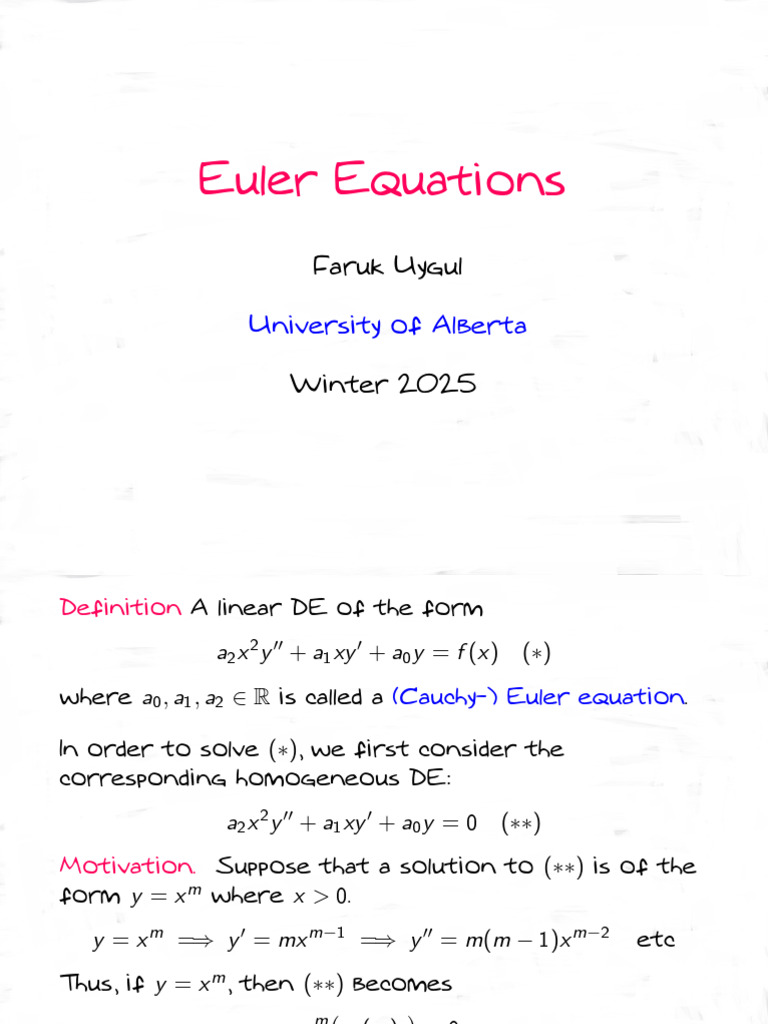 Euler Equations
Faruk Uygul
University of Alberta
Winter 2025
Definition A linear DE of the form
a₂x²y″ + a₁xy′ + a₀y = f(x) (∗)
where a₀, a₁, a₂ ∈ ℝ is called a (Cauchy-) Euler equation.
In order to solve (∗), we first consider the
corresponding homogeneous DE:
a₂x²y″ + a₁xy′ + a₀y = 0 (∗∗)
Motivation. Suppose that a solution to (∗∗) is of the
form y = xᵐ where x > 0.
y = xᵐ ⟹ y′ = mxᵐ⁻¹ ⟹ y″ = m(m − 1)xᵐ⁻² etc
Thus, if y = xᵐ, then (∗∗) becomes